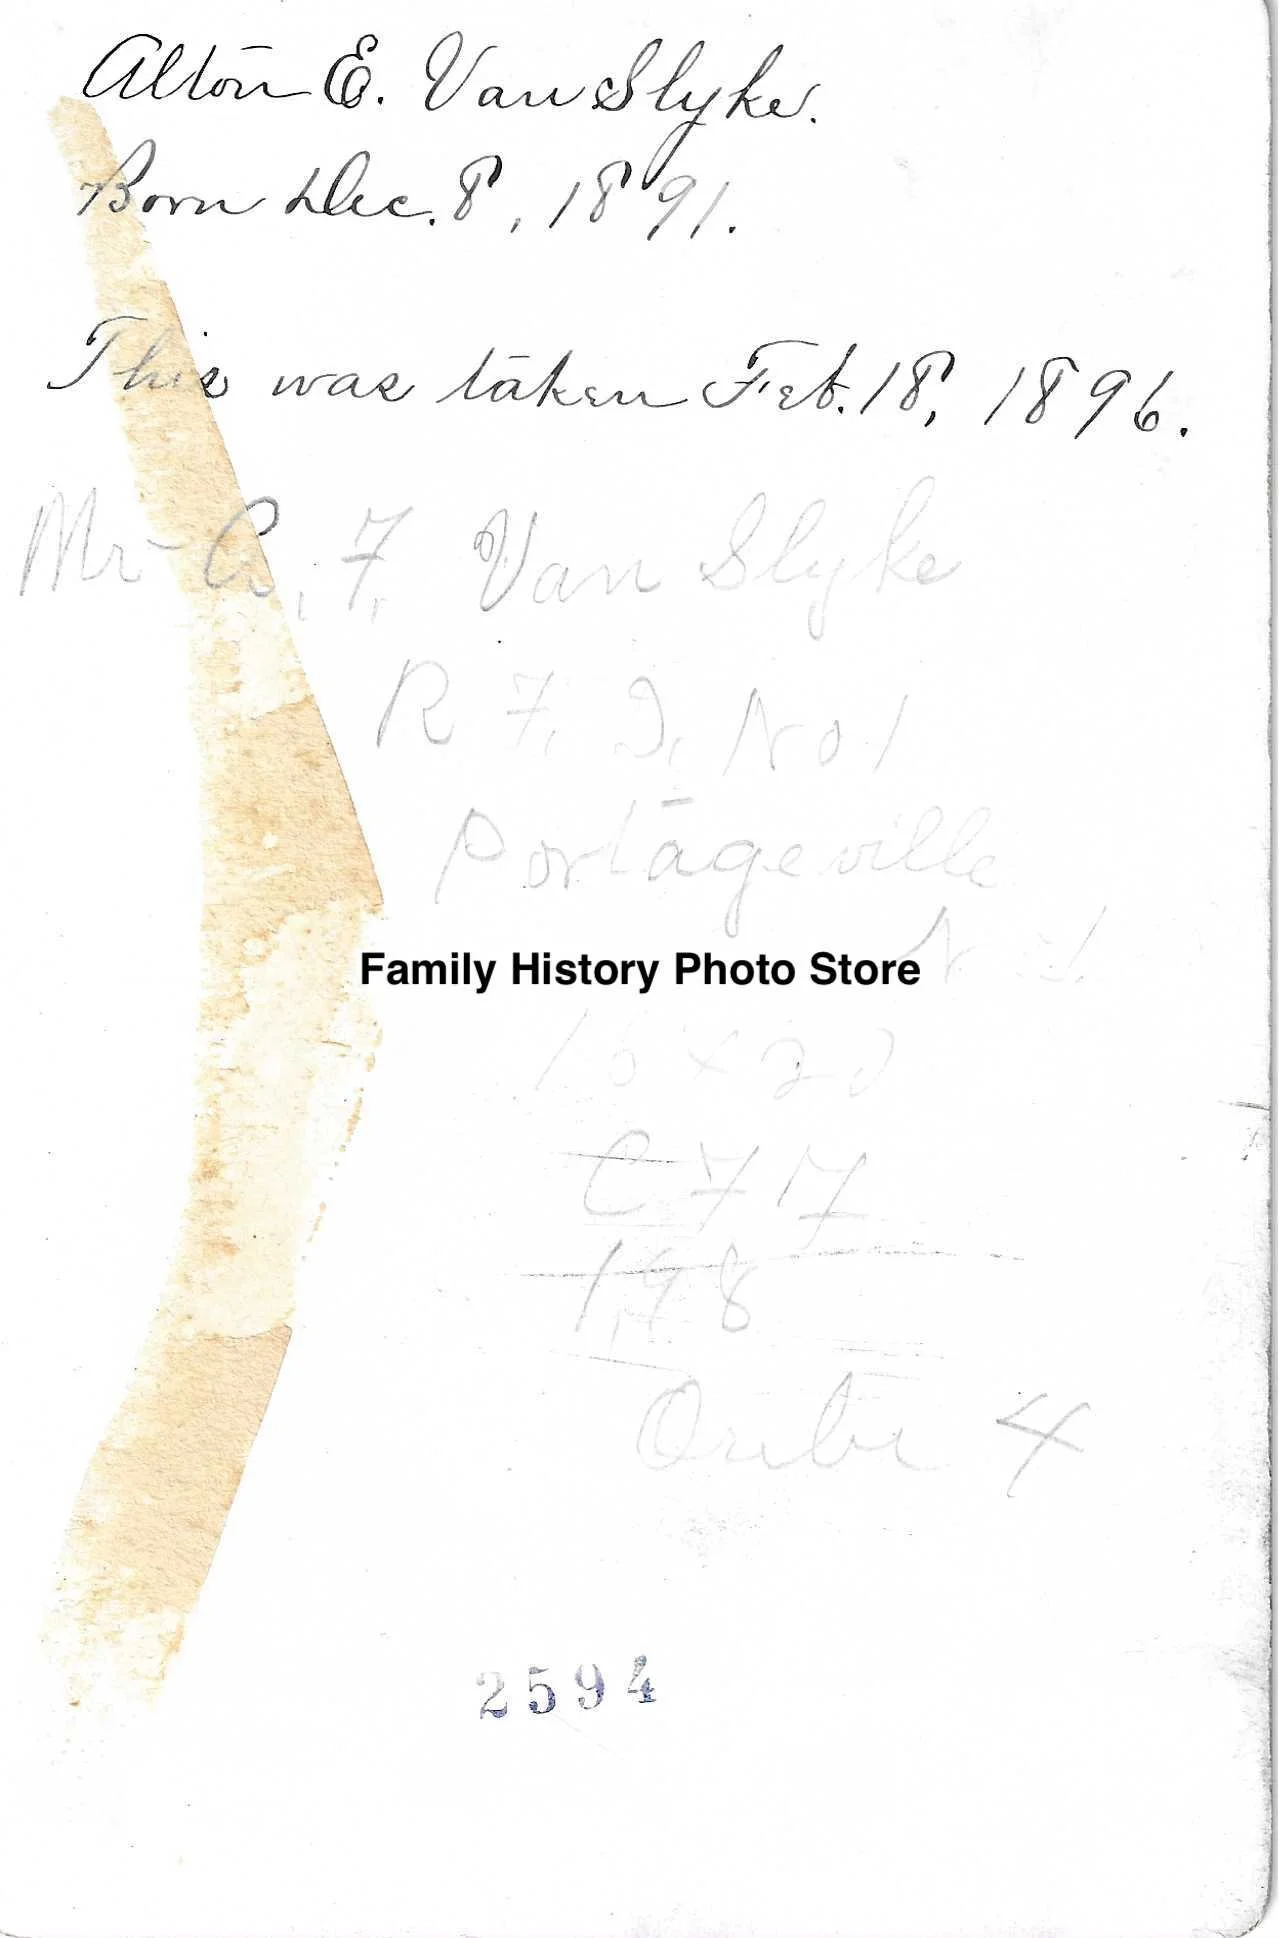 Alton E. Van Slyke.
Born Dec. 8, 1891.
This was taken Feb. 18, 1896.
Mr F. Van Slyke
R F. D. No 1
Portageville
N Y.
Family History Photo Store
16 x 20
C 77
198
4
2594